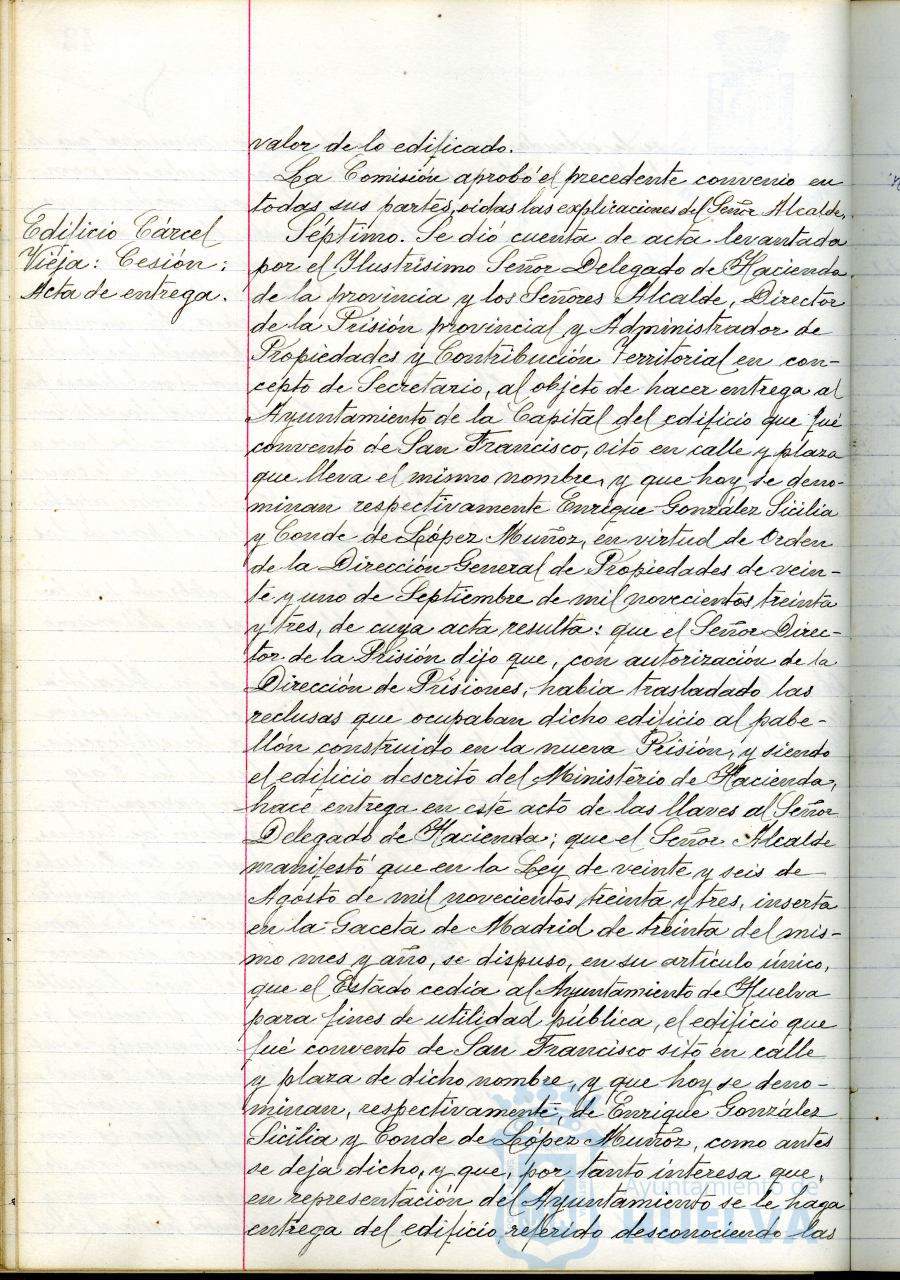 valor de lo edificado.
La Comisión aprobó el precedente convenio en
todas sus partes, oidas las explicaciones del Señor Alcalde.
Edificio Cárcel
Vieja: Cesión:
Acta de entrega.
Séptimo. Se dió cuenta de acta levantada
por el Ilustrísimo Señor Delegado de Hacienda
de la provincia y los Señores Alcalde, Director
de la Prisión provincial y Administrador de
Propiedades y Contribución Territorial en con-
cepto de Secretario, al objeto de hacer entrega al
Ayuntamiento de la Capital del edificio que fué
convento de San Francisco, sito en calle y plaza
que lleva el mismo nombre, y que hoy se deno-
minan respectivamente Enrique González Sicilia
y Conde de López Muñoz, en virtud de Orden
de la Dirección General de Propiedades de vein-
te y uno de Septiembre de mil novecientos treinta
y tres, de cuya acta resulta: que el Señor Direc-
tor de la Prisión dijo que, con autorización de la
Dirección de Prisiones, había trasladado las
reclusas que ocupaban dicho edificio al pabe-
llón construido en la nueva Prisión, y siendo
el edificio descrito del Ministerio de Hacienda,
hace entrega en este acto de las llaves al Señor
Delegado de Hacienda; que el Señor Alcalde
manifestó que en la Ley de veinte y seis de
Agosto de mil novecientos treinta y tres, inserta
en la Gaceta de Madrid de treinta del mis-
mo mes y año, se dispuso, en su artículo único,
que el Estado cedia al Ayuntamiento de Huelva
para fines de utilidad pública, el edificio que
fué convento de San Francisco sito en calle
y plaza de dicho nombre, y que hoy se deno-
minan, respectivamente, de Enrique González
Sicilia y Conde de López Muñoz, como antes
se deja dicho, y que, por tanto interesa que,
en representación del Ayuntamiento se le haga
entrega del edificio referido desconociendo las
Ayuntamiento de
HUELVA